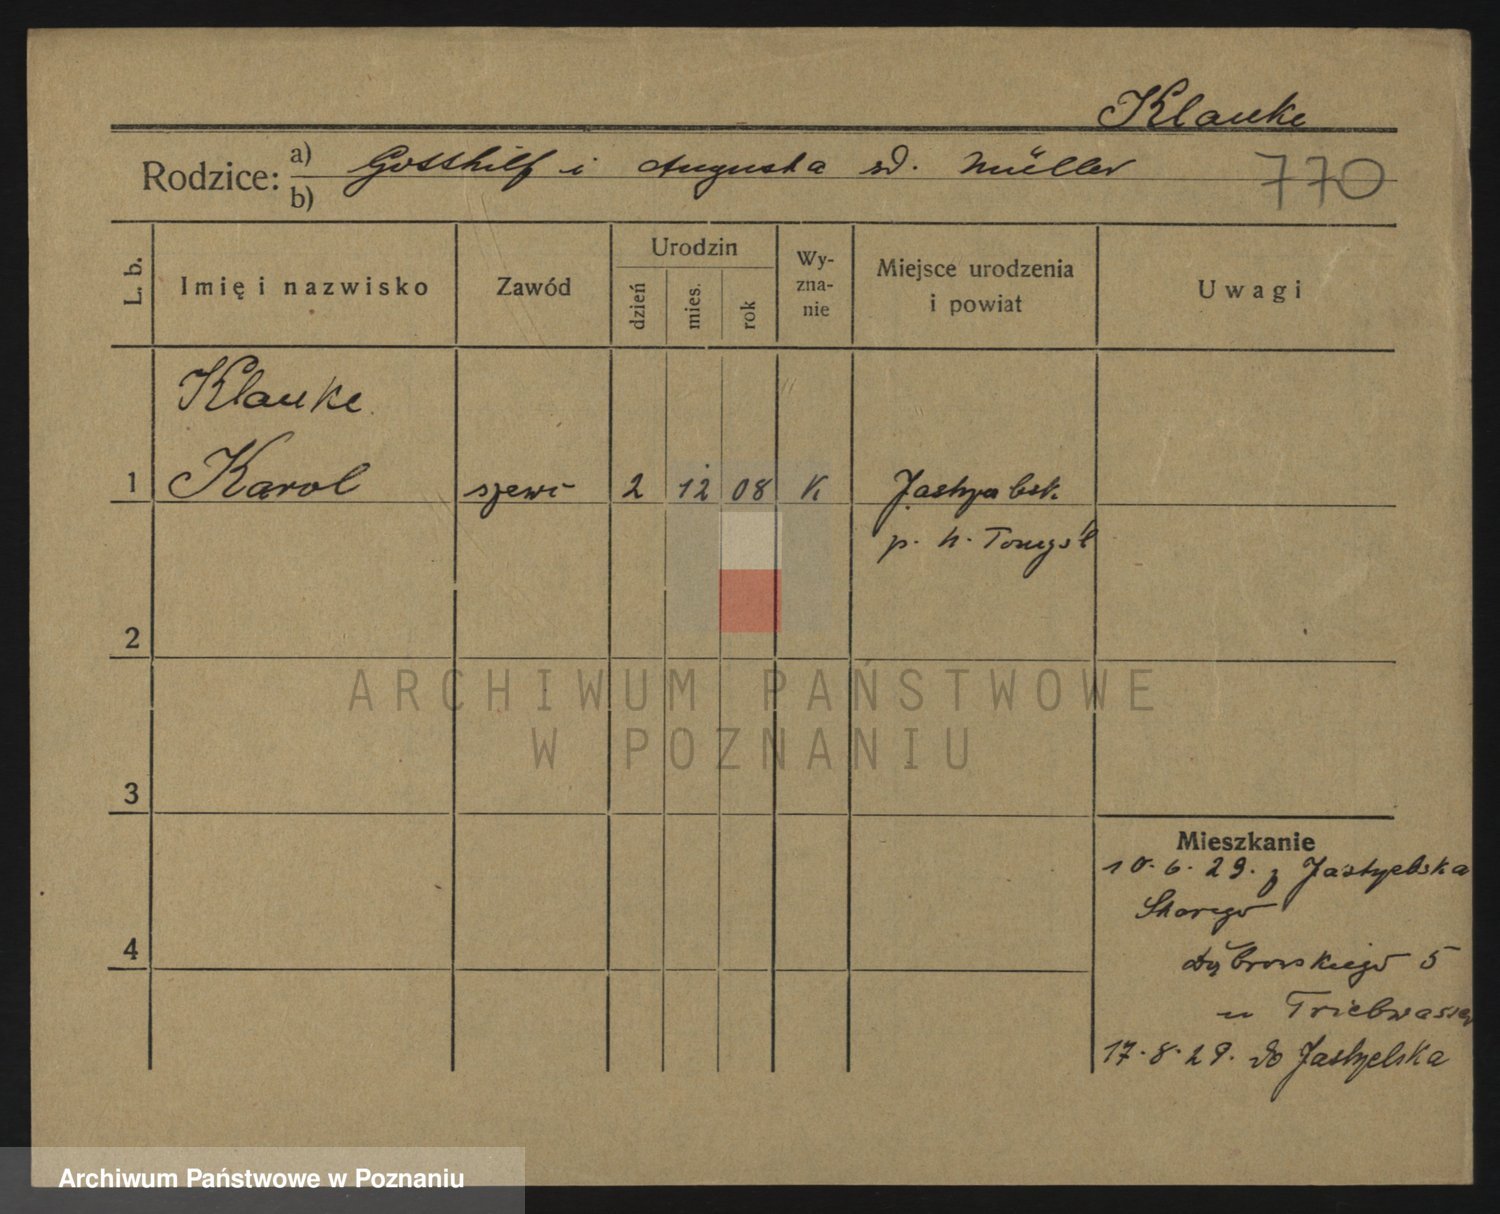 Klauke
Rodzice: a) b) Gotthilf i Augusta zd. Müller 770
L. b. Imię i nazwisko Zawód Urodzin dzień mies. rok Wy-zna-nie Miejsce urodzenia i powiat Uwagi
Klauke
1 Karol szewc 2 12 08 K Jastrzębsk.
p. n. Tomyśl
2
ARCHIWUM PAŃSTWOWE
W POZNANIU
3
Mieszkanie
10. 6. 29. z Jastrzębska
Starego
4
Dąbrowskiego 5
u Triebwasser
17. 8. 29. do Jastrzębska
Archiwum Państwowe w Poznaniu